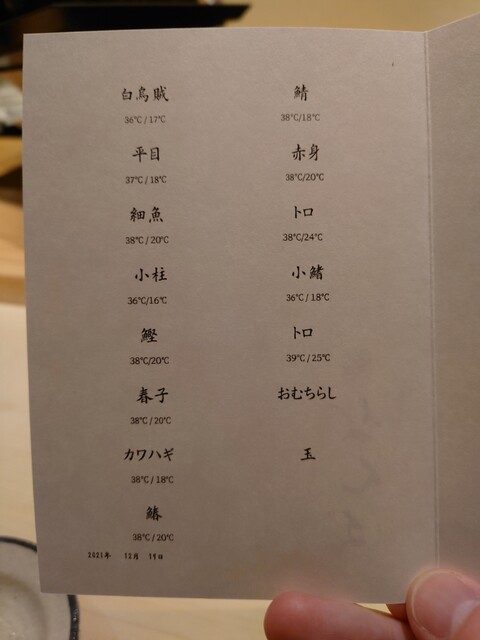 白烏賊
36℃ / 17℃
平目
37℃ / 18℃
細魚
38℃ / 20℃
小柱
36℃/16℃
鰹
38℃/20℃
春子
38℃ / 20℃
カワハギ
38℃ / 18℃
鰆
38℃ / 20℃
2021年 12月 19日
鯖
38℃/18℃
赤身
38℃/20℃
トロ
38℃/24℃
小鰭
36℃ / 18℃
トロ
39℃ / 25℃
おむちらし
玉